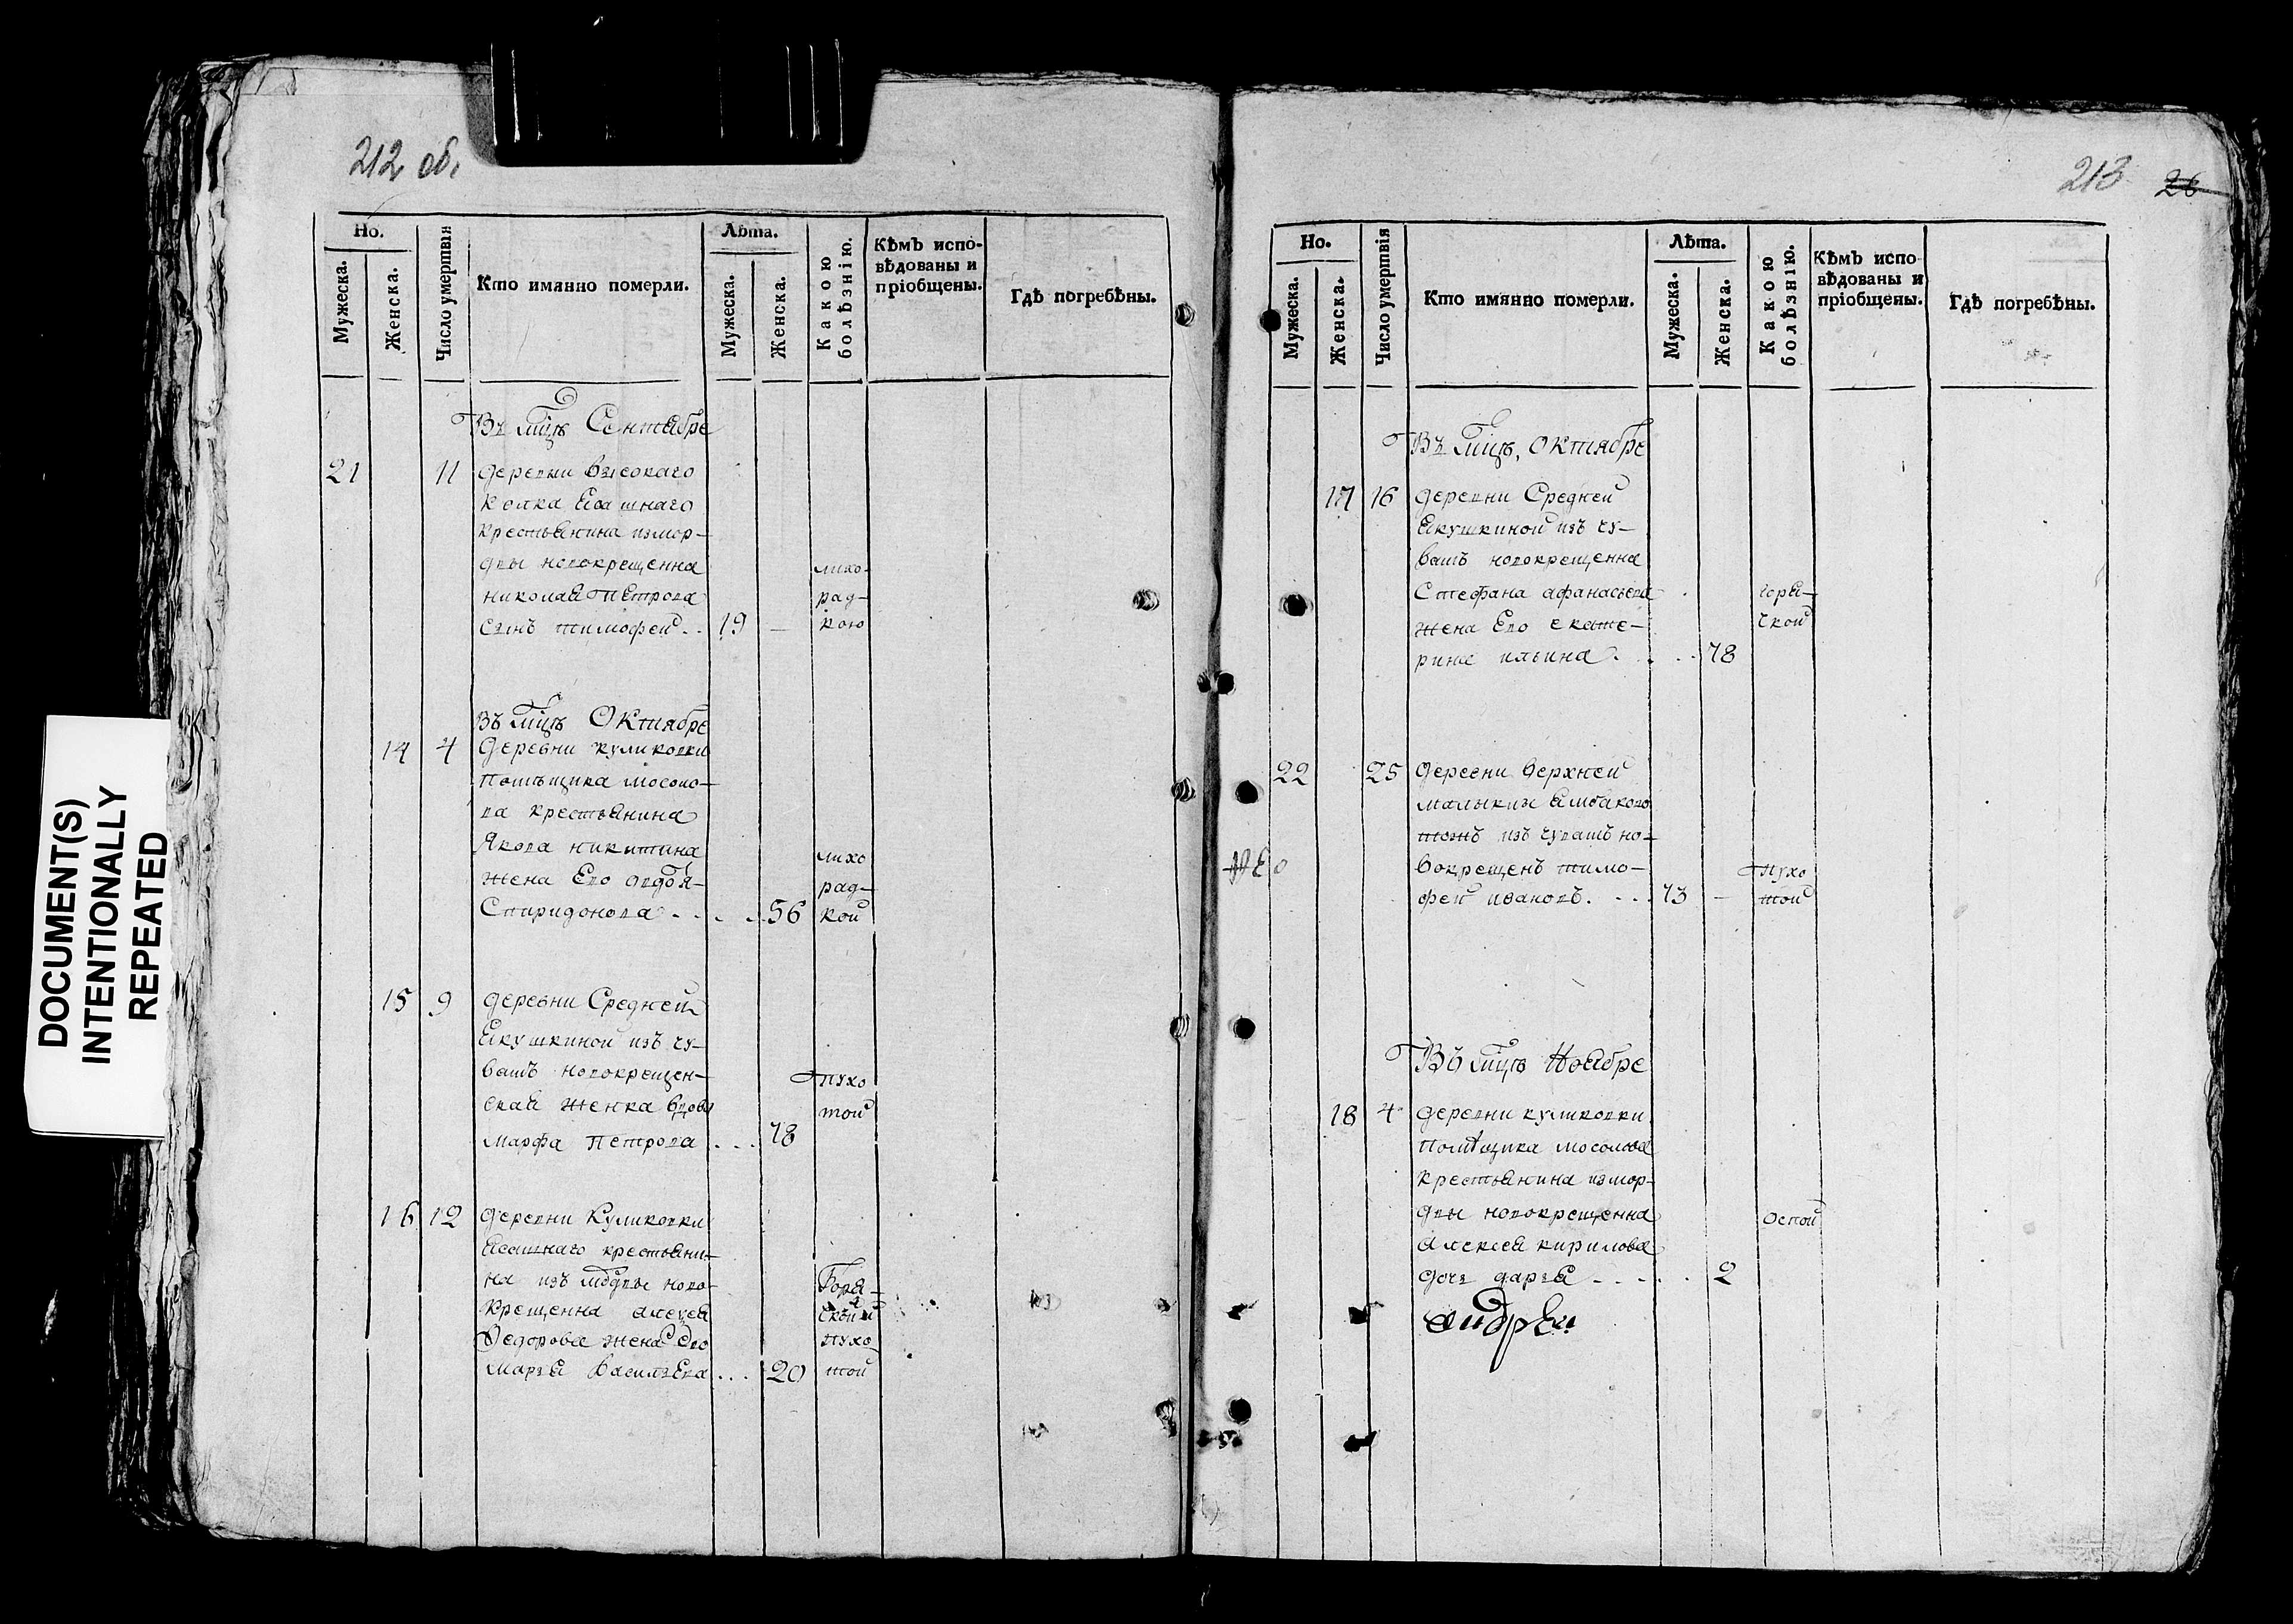 212 об.
Но.
Мужеска.
Женска.
Число умертвія
Кто имянно померли.
Лѣта.
Мужеска.
Женска.
Какою болѣзнію.
Кѣмъ испо-
вѣдованы и
пріобщены.
Гдѣ погребѣны.
Въ мцѣ Сентябре
21 11 деревни высокаго
колка ясашнаго
крестьянина измор-
двы новокрещенна лихо-
николая петрова рад-
сынъ тимофей 19 кою
Въ мцѣ Октябре
14 4 деревни куликовки
помѣщика мосоло-
ва крестьянина
Якова никитина лихо
жена Его рад-
Спиридонова 56 кой
15 9 деревни Средней
Якушкиной изъ чу-
вашъ новокрещен- пухо
ская женка вдова той
марфа петрова 78
16 12 деревни Куликовки
ясашнаго крестьяни-
на изъ мордвы ново- Горя-
крещенна алексея
Федорова жена Его пухо
марья васильева 20 той
213 26
Но.
Мужеска.
Женска.
Число умертвія
Кто имянно померли.
Лѣта.
Мужеска.
Женска.
Какою болѣзнію.
Кѣмъ испо
вѣдованы и
пріобщены.
Гдѣ погребѣны.
Въ мцѣ, Октябре
17 16 деревни Средней
Якушкиной изъ чу-
вашъ новокрещенна
Стефана афанасьева горя-
жена Его екате- чкой
рина ильина 78
22 25 деревни верхней
малыкли ямбаково
тожъ изъ чувашъ но-
вокрещенъ тимо- пухо
фей ивановъ 73 той
Въ мцѣ Ноябре
18 4 деревни куликовки
помѣщика мосолова
крестьянина измор-
двы новокрещенна оспой
алексея кирилова
дочь дарья 2
андреи
DOCUMENT(S)
INTENTIONALLY
REPEATED